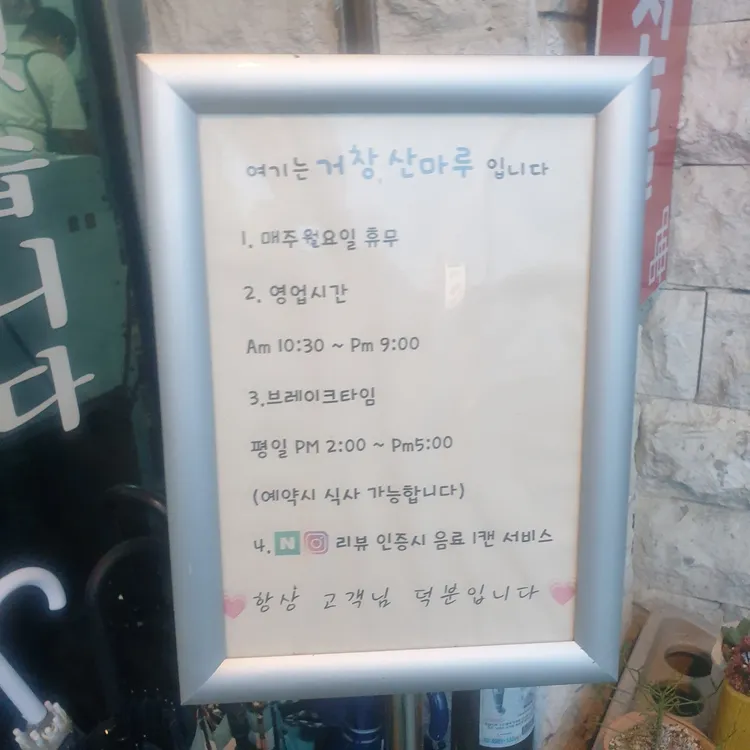 여기는 거창 산마루 입니다
1. 매주월요일 휴무
2. 영업시간
Am 10:30 ~ Pm 9:00
3.브레이크타임
평일 PM 2:00 ~ Pm5:00
(예약시 식사 가능합니다)
4. N 리뷰 인증시 음료 1캔 서비스
항상 고객님 덕분입니다
습
니
다